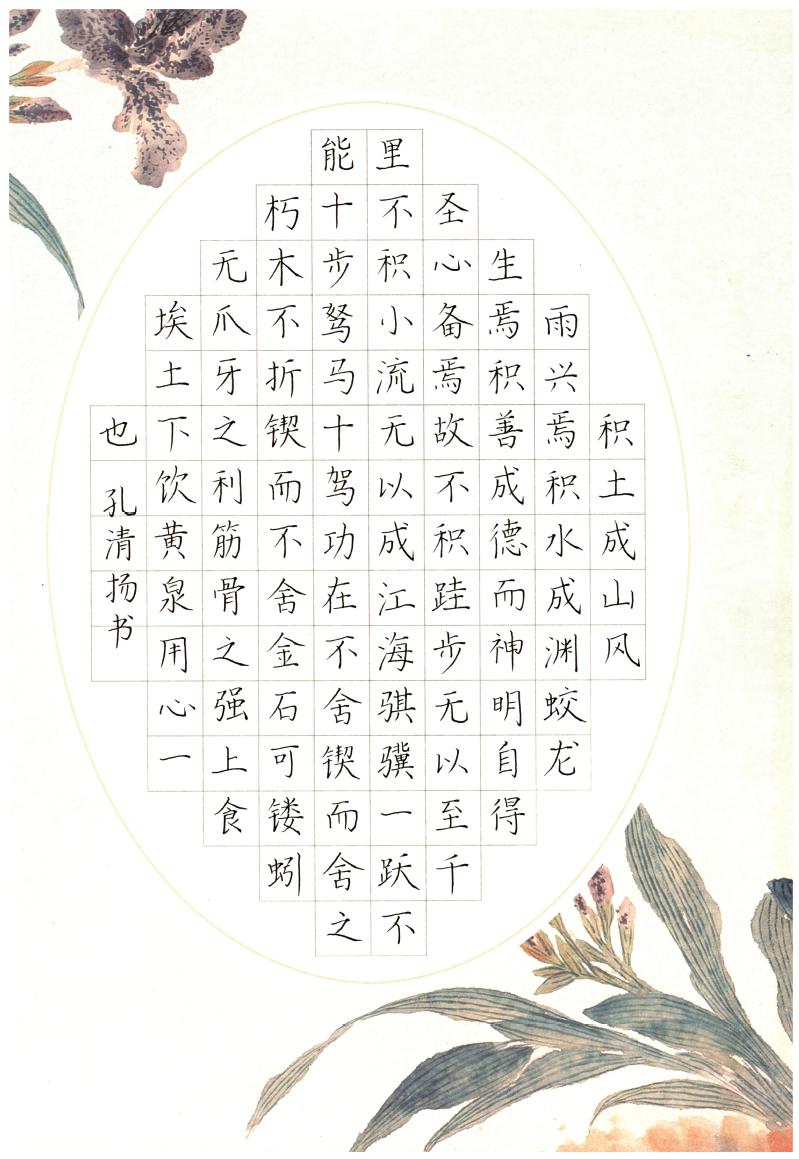 积土成山风
雨兴焉积水成渊蛟龙
生焉积善成德而神明自得
圣心备焉故不积跬步无以至千
里不积小流无以成江海骐骥一跃不
能十步驽马十驾功在不舍锲而舍之
朽木不折锲而不舍金石可镂蚓
无爪牙之利筋骨之强上食
埃土下饮黄泉用心一
也
孔清扬书